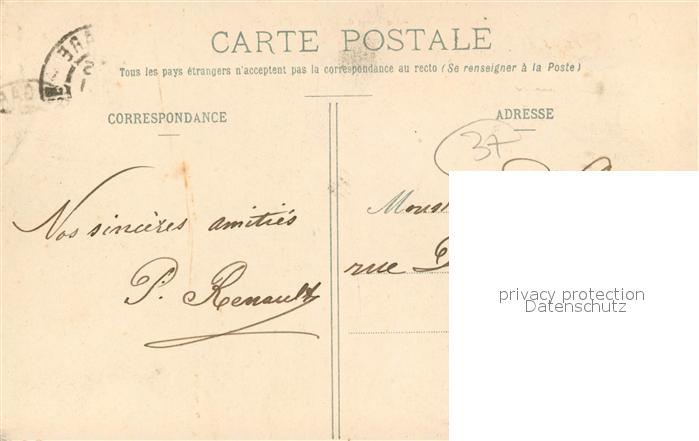 CARTE POSTALE
Tous les pays étrangers n'acceptent pas la correspondance au recto (Se renseigner à la Poste)
CORRESPONDANCE
ADRESSE
37
Nos sincères amitiés
P. Renault
rue
privacy protection
Datenschutz